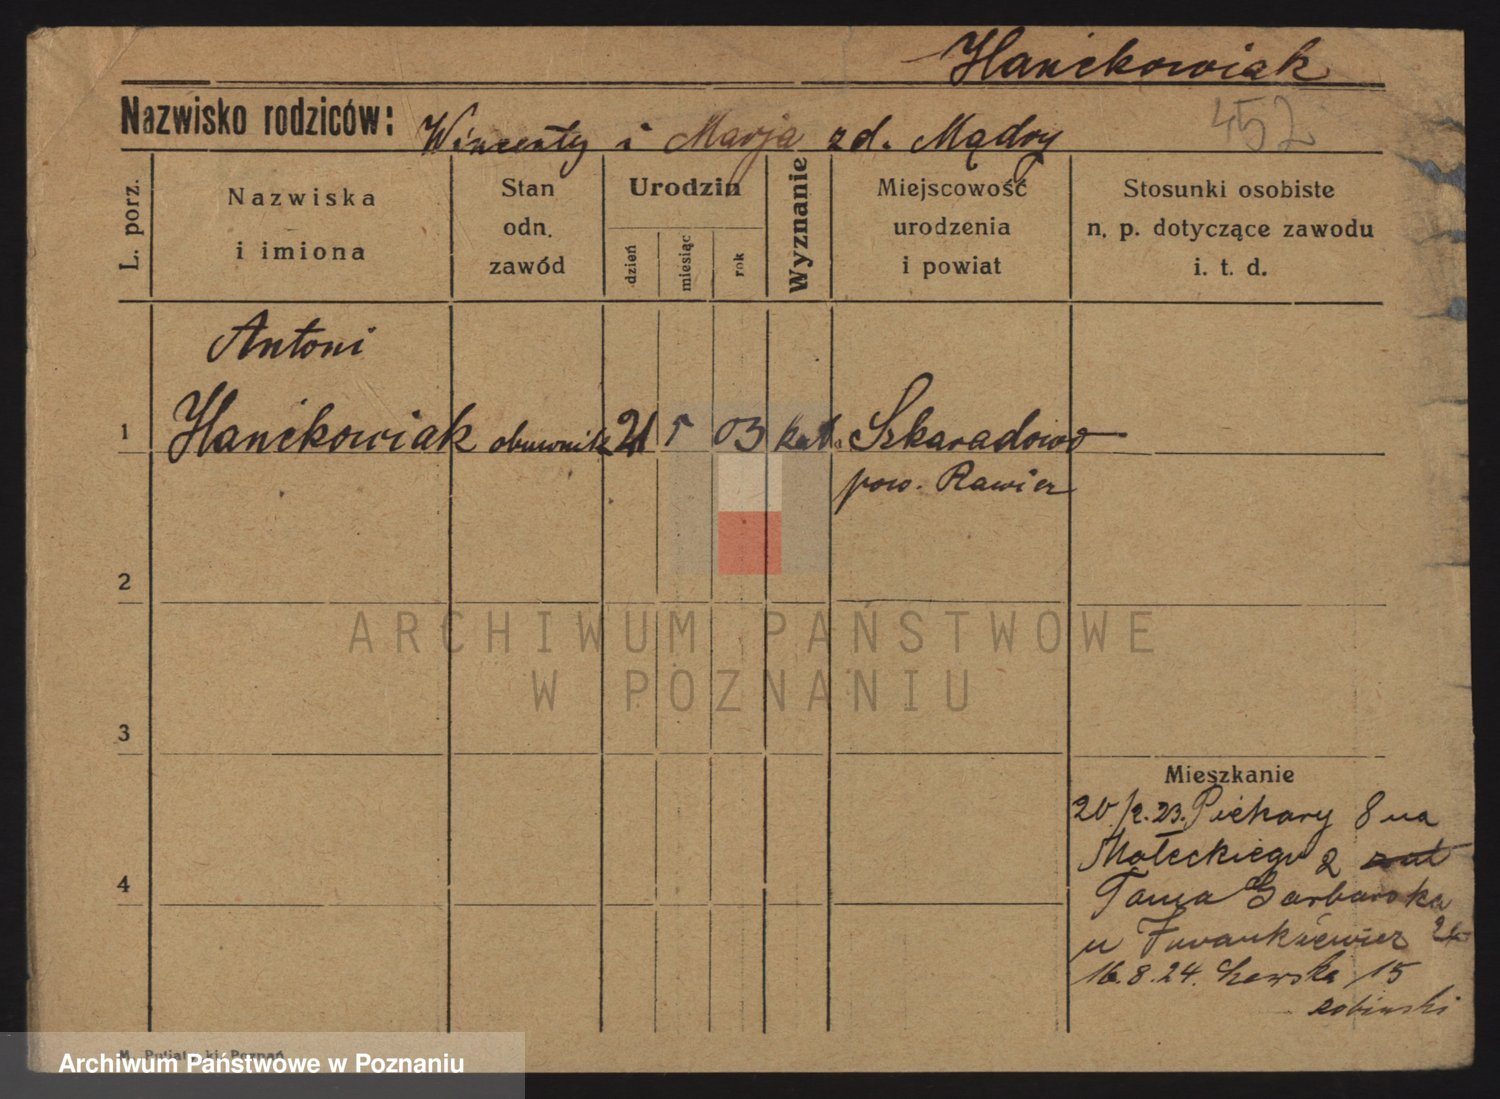 Hańćkowiak
452
Nazwisko rodziców: Wincenty i Marja zd. Mądry
L. porz.
Nazwiska
i imiona
Stan
odn.
zawód
Urodzin
dzień
miesiąc
rok
Wyznanie
Miejscowość
urodzenia
i powiat
Stosunki osobiste
n. p. dotyczące zawodu
i. t. d.
Antoni
1 Hańćkowiak obuwnik 21 5 03 kat. Szkaradowo
pow. Rawicz
2
ARCHIWUM PAŃSTWOWE
W POZNANIU
3
Mieszkanie
20/2.23. Piekary 8 na
Małeckiego 2
4
Tama Garbarska
u
16.8.24. 15
Archiwum Państwowe w Poznaniu